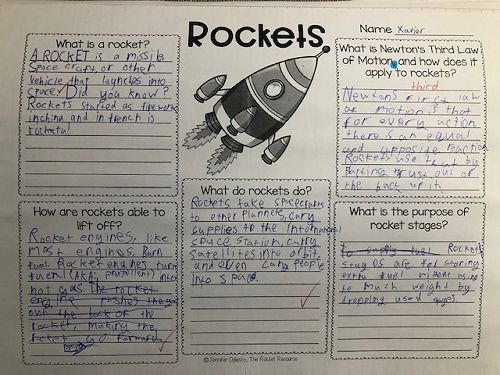 Rockets
Name Xavier
What is a rocket?
A ROCKET is a missile
Space craft, or other
vehicle that launches into
space. Did you know?
Rockets started as fireworks
in china and in french is
What is Newton's Third Law
of Motion, and how does it
apply to rockets?
third
Newtons first law
of motion is that
for every action
there is an equal
and opposite reaction
Rockets use that by
thrust out of
the back of it.
How are rockets able to
lift off?
Rocket engines, like
most engines, burn
fuel. Rocket engines turn
fuel (AKA: propellent) into
hot gas. The rocket
engine pushes the gas
out the back of the
rocket, making the
rocket go forward.
What do rockets do?
Rockets take spacecrafts
to other planets, carry
supplies to the International
space station, carry
satellites into orbit,
and even carry people
into space.
What is the purpose
of rocket stages?
to supply fuel Rocket
stages are for storing
extra fuel without using
to much weight by
dropping used
©Jennifer Oglesby, The Rocket Resource